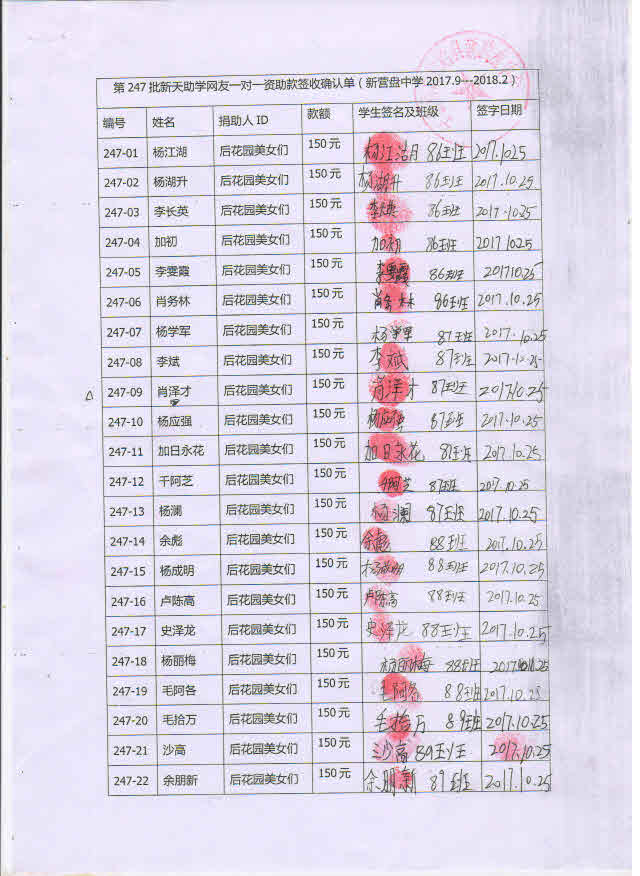 第247批新天助学网友一对一资助款签收确认单（新营盘中学2017.9---2018.2）
编号 姓名 捐助人ID 款额 学生签名及班级 签字日期
247-01 杨江湖 后花园美女们 150元 杨江湖 86班 2017.10.25
247-02 杨湖升 后花园美女们 150元 杨湖升 86班 2017.10.25
247-03 李长英 后花园美女们 150元 李长英 86班 2017.10.25
247-04 加初 后花园美女们 150元 加初 86班 2017.10.25
247-05 李雯霞 后花园美女们 150元 李雯霞 86班 2017.10.25
247-06 肖务林 后花园美女们 150元 肖务林 86班 2017.10.25
247-07 杨学军 后花园美女们 150元 杨学军 87班 2017.10.25
247-08 李斌 后花园美女们 150元 李斌 87班 2017.10.25
247-09 肖泽才 后花园美女们 150元 肖泽才 87班 2017.10.25
247-10 杨应强 后花园美女们 150元 杨应强 87班 2017.10.25
247-11 加日永花 后花园美女们 150元 加日永花 87班 2017.10.25
247-12 干阿芝 后花园美女们 150元 干阿芝 87班 2017.10.25
247-13 杨澜 后花园美女们 150元 杨澜 87班 2017.10.25
247-14 余彪 后花园美女们 150元 余彪 88班 2017.10.25
247-15 杨成明 后花园美女们 150元 杨成明 88班 2017.10.25
247-16 卢陈高 后花园美女们 150元 卢陈高 88班 2017.10.25
247-17 史泽龙 后花园美女们 150元 史泽龙 88班 2017.10.25
247-18 杨丽梅 后花园美女们 150元 杨丽梅 88班 2017.10.25
247-19 毛阿各 后花园美女们 150元 毛阿各 88班 2017.10.25
247-20 毛拾万 后花园美女们 150元 毛拾万 89班 2017.10.25
247-21 沙高 后花园美女们 150元 沙高 89班 2017.10.25
247-22 余朋新 后花园美女们 150元 余朋新 89班 2017.10.25